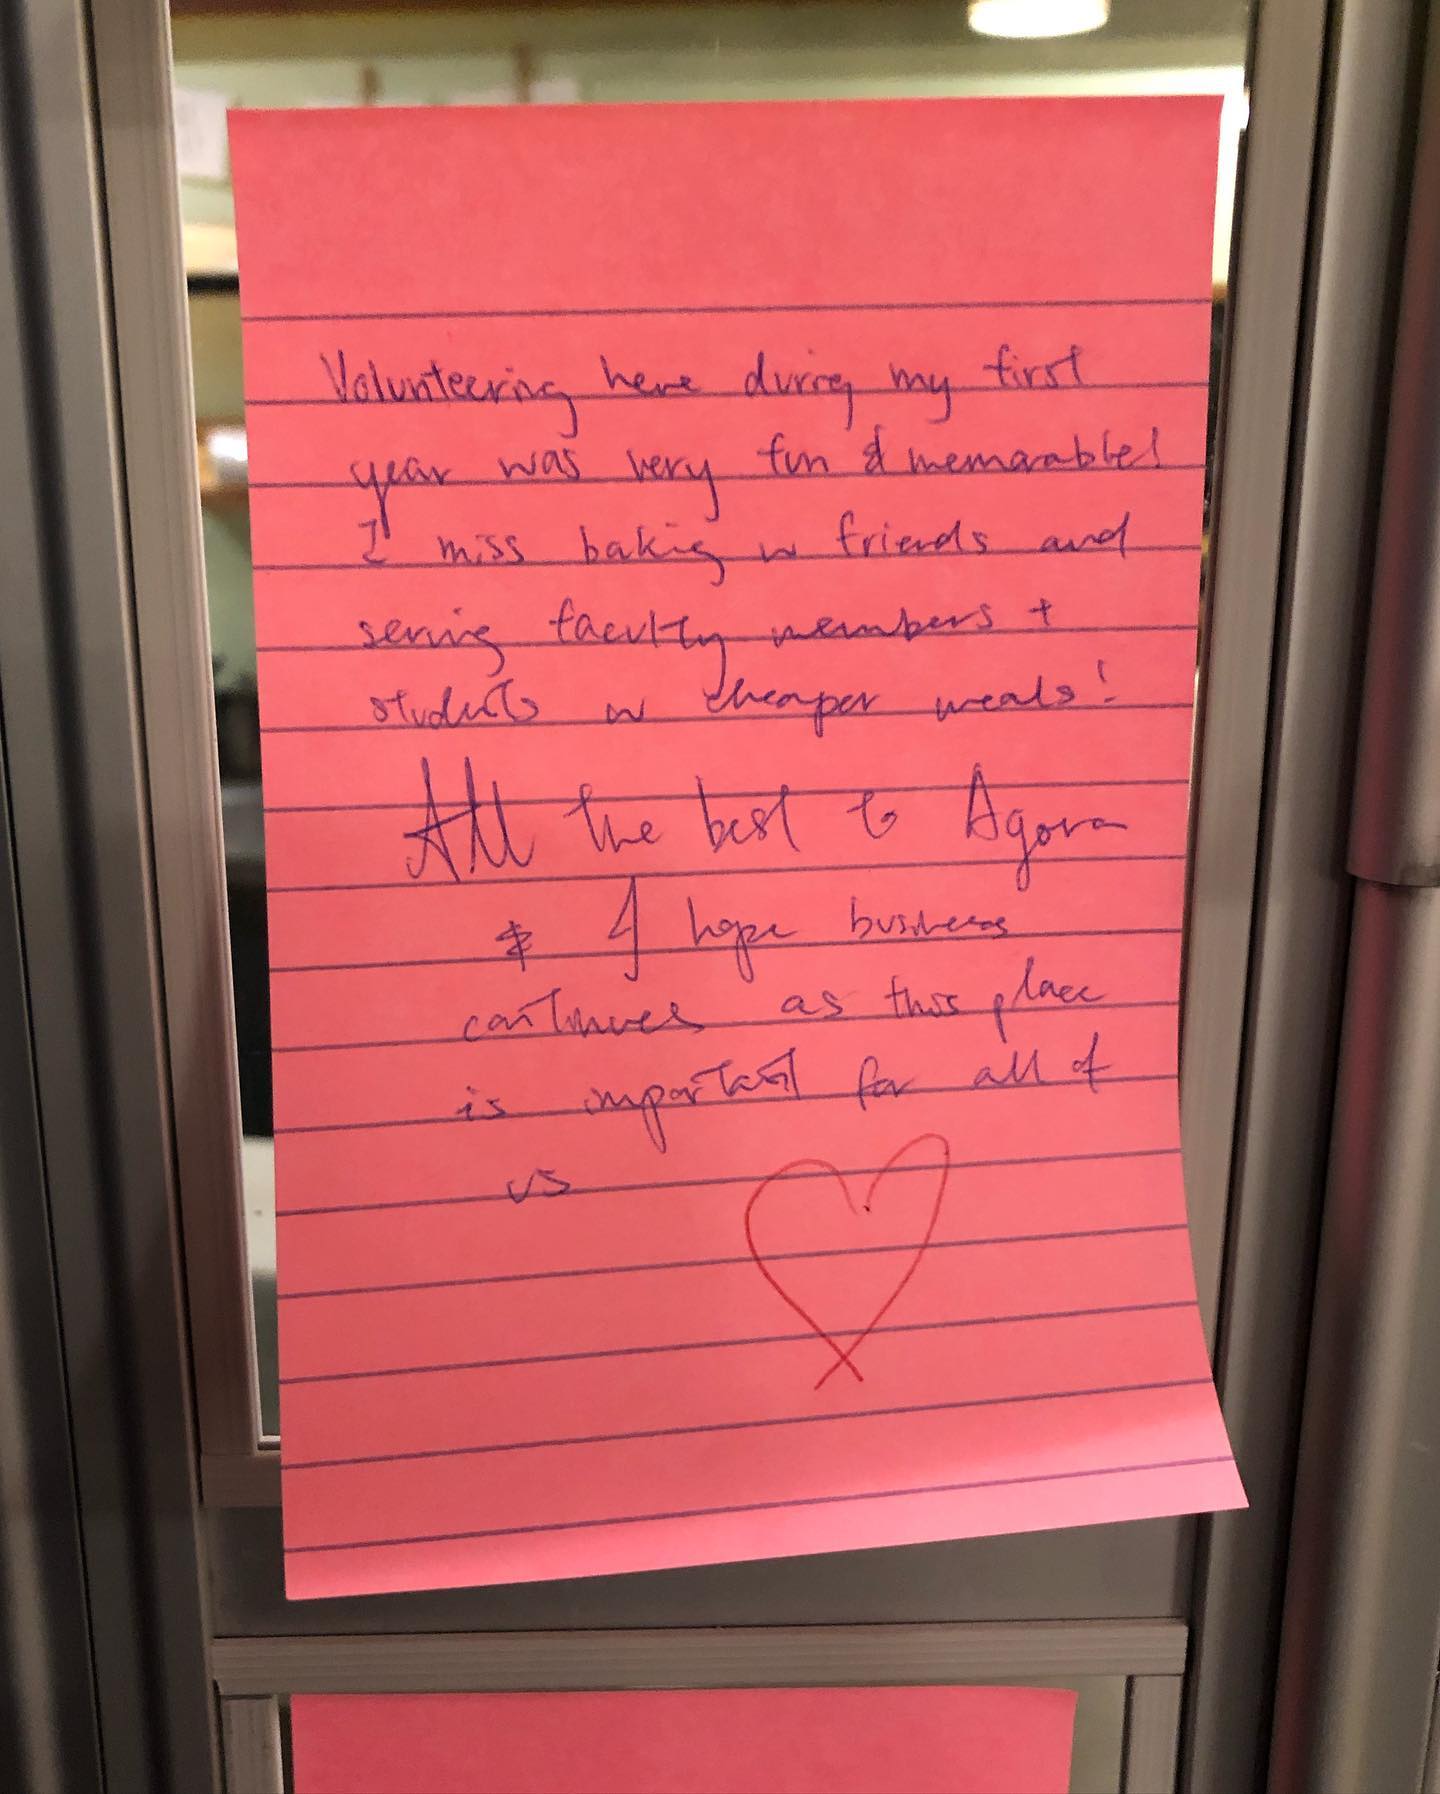 Volunteering here during my first
year was very fun & memorable!
I miss baking w friends and
serving faculty members +
students w cheaper meals!
All the best to Agora
& I hope business
continues as this place
is important for all of
us